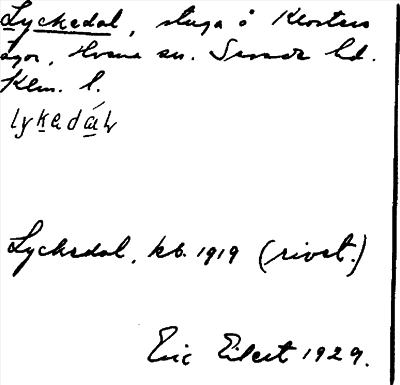 Lyckedal, stuga å Klosters
ägor, Husna sn. Sevede hd.
Klm. l.
lykedál
Lyckedal, kb. 1919 (rivet.)
Eric Eilert 1929.